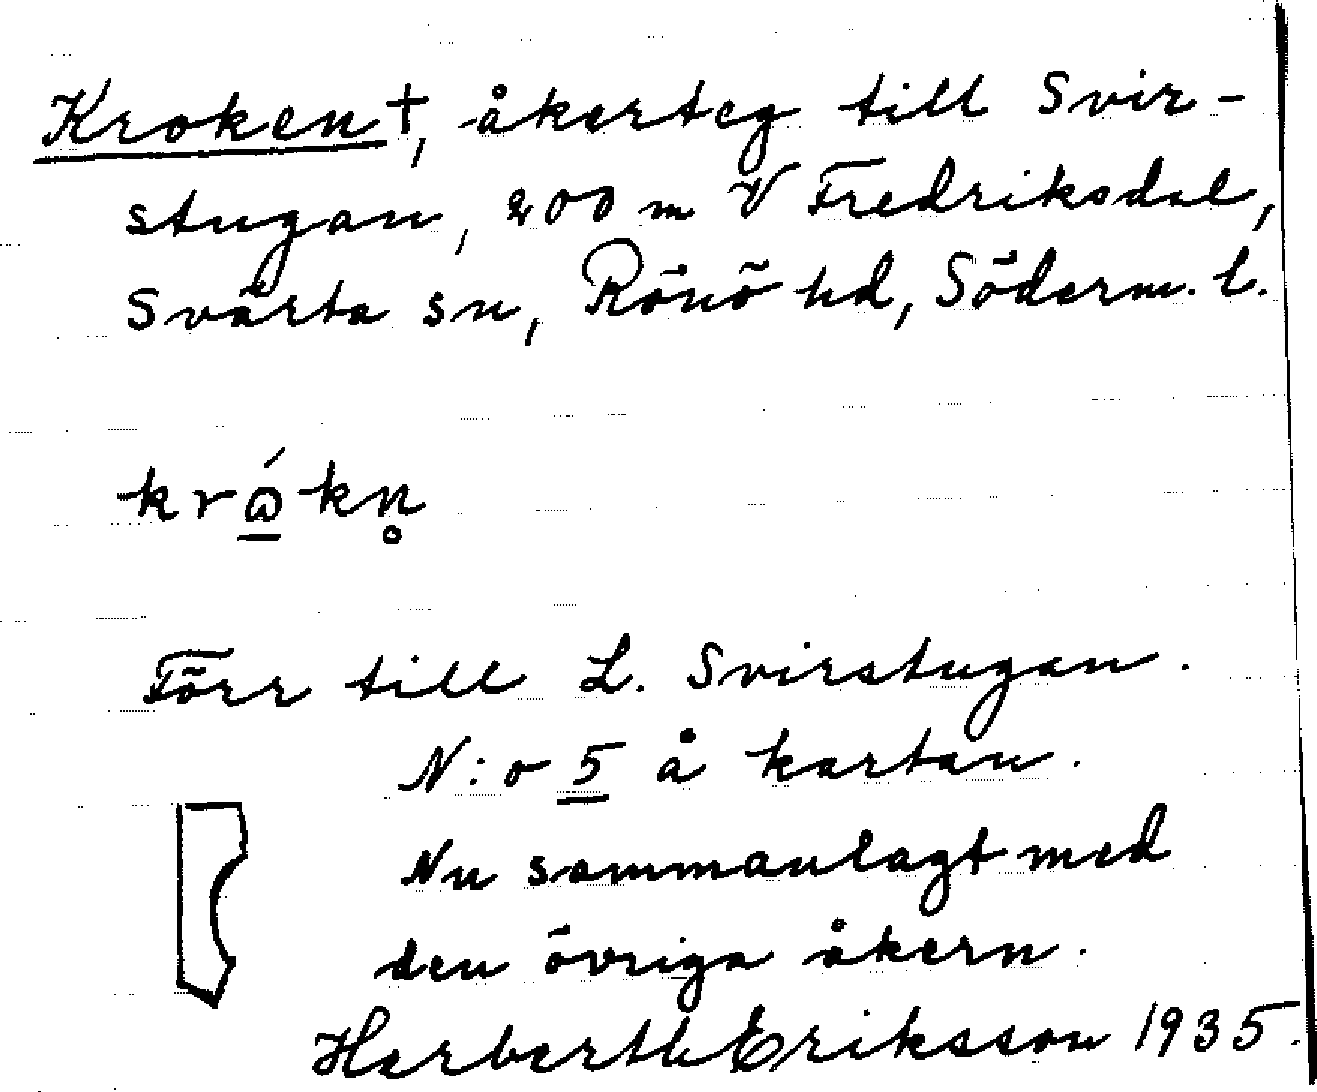 Kroken †, åkerteg till Svir-
stugan, 200 m V Fredriksdal,
Svärta sn, Rönö hd, Söderm. l.
krώ̲kn̥
Förr till L. Svirstugan.
N:o 5 å kartan.
Nu sammanlagt med
den övriga åkern.
Herberth Eriksson 1935.